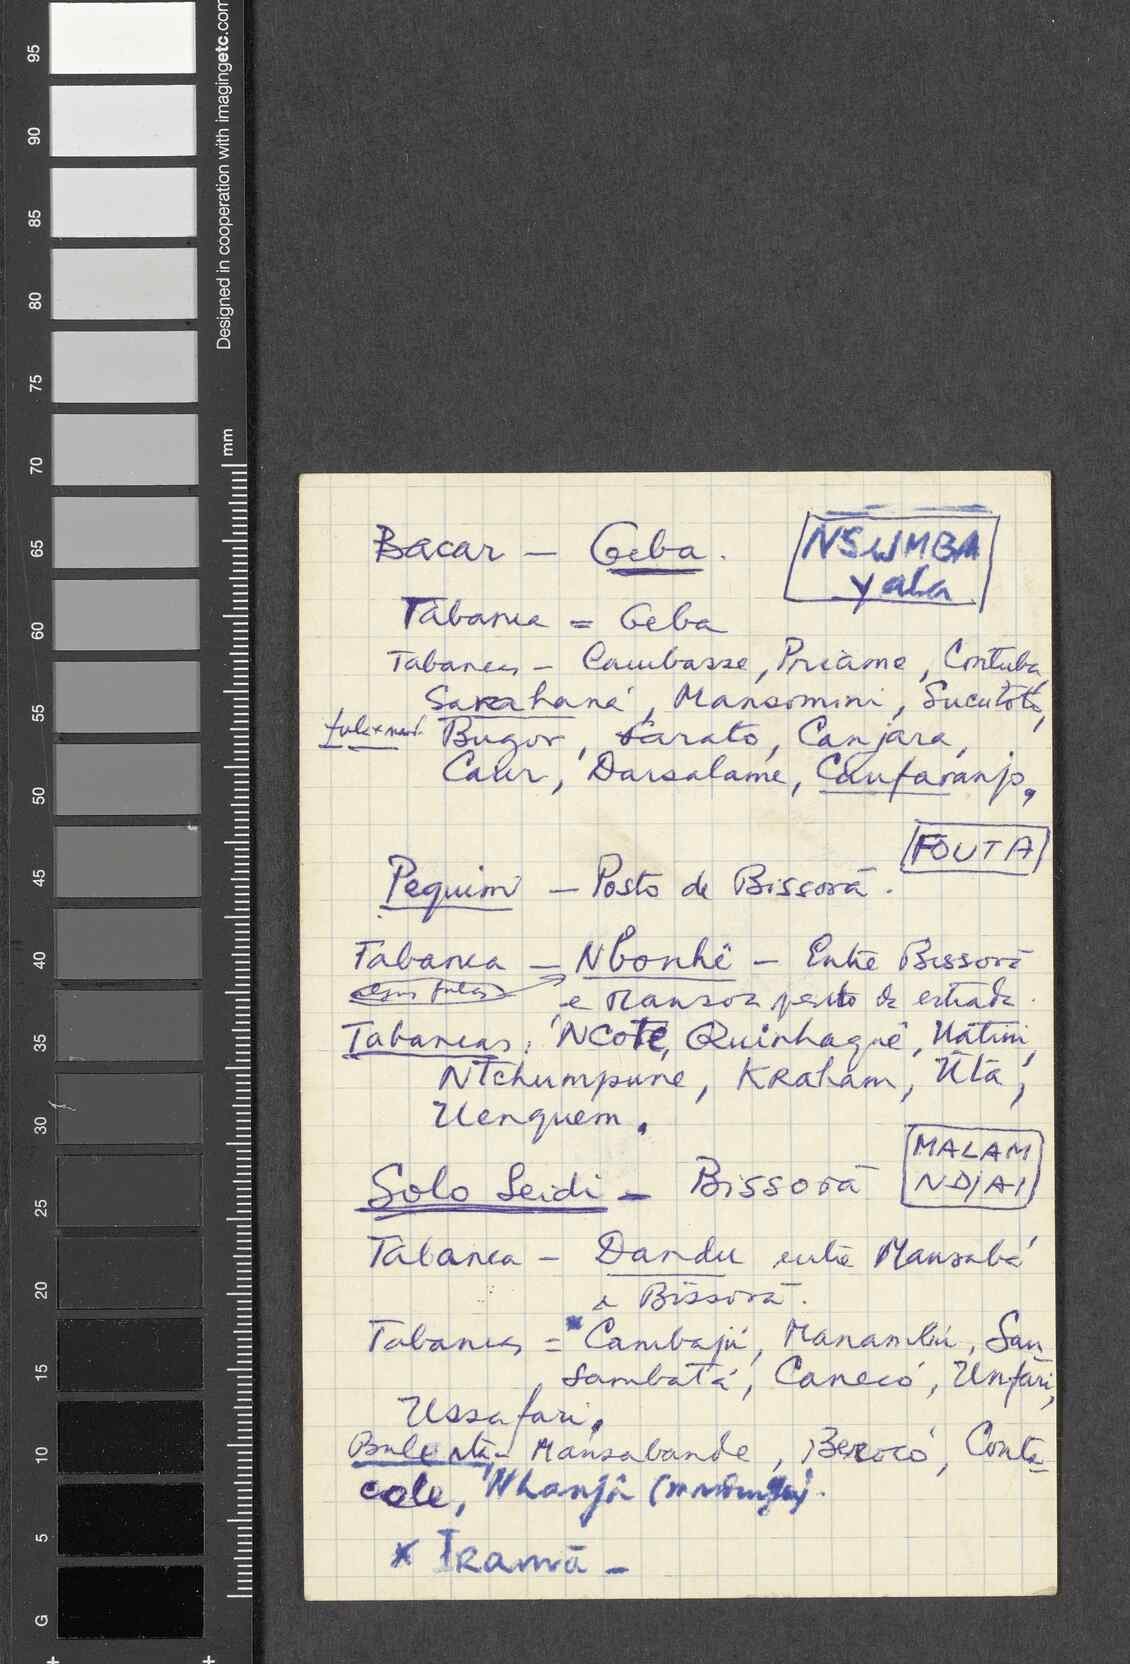 95
90
85
80
75
70
65
60
55
50
45
40
35
30
25
20
15
10
5
G
Designed in cooperation with imagingetc.com
mm
Bacar — Geba.
NSUMBA
Yaba
Tabanca = Geba
Tabancas — Cambasse, Priame, Contuba,
Sarahané, Mansomini, Sucutótó,
Bugor, Sarató, Canjara,
Caur, Darsalame, Caufaranjo.
FOUTA
Pequim — Posto de Bissorã.
Tabanca — Nbonhê — Entre Bissorã
alguns fulas
e Mansoa perto da estrada.
Tabancas: NCote, Quinhaquê, Uátini,
Ntchumpune, Kraham, Útá,
Uenquem.
MALAM
NDIAI
Solo Seidi — Bissorã
Tabanca — Dandu entre Mansabá
e Bissorã.
Tabancas = * Cambajú, Manambú, San
sambatá, Canecó, Unfari,
Ussafari.
Mansabande, Berecó, Conta-
cole, Nhanjó
* Iramã —